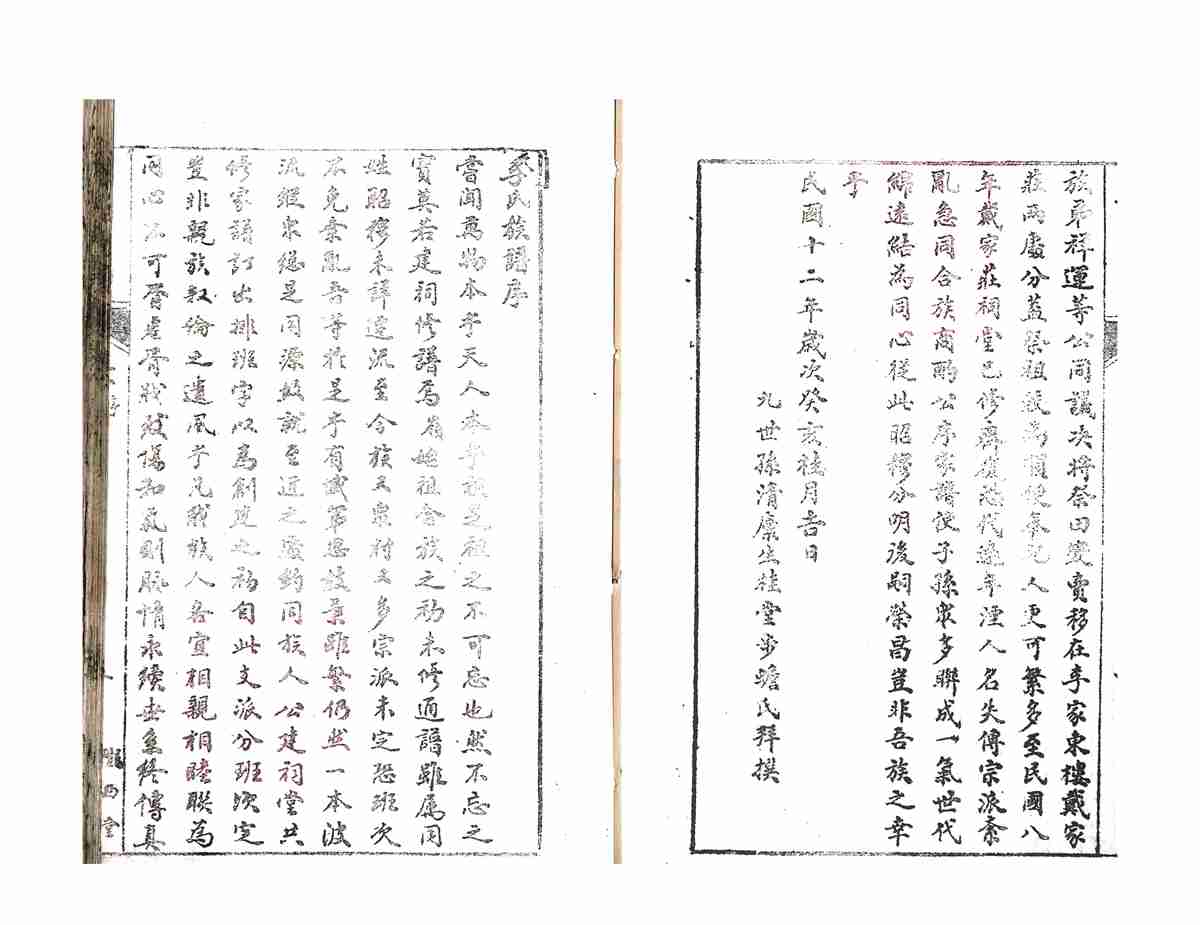 族弟祥運等公同議決將祭田變賣移在李家東樓戴家
莊兩處分蓋祭祖祇為祖便無記人更可繁多至民國八
年戴家莊祠堂已修齊有恐代遠年湮人名失傳宗派紊
亂急同合族商酌公序家譜使子孫眾多聯成一氣世代
綿遠結為同心從此昭穆分明後嗣榮昌豈非吾族之幸
乎
民國十二年歲次癸亥桂月吉日
九世孫清廩生桂堂步蟾氏拜撰
李氏族譜序
嘗聞萬物本乎天人本乎祖是祖之不可忘也然不忘之
實莫若建祠修譜焉始祖合族之初未修通譜雖属同
姓昭穆未譯遠流至今族大衆村大多宗派未定恐班次
不免紊亂吾等於是乎有誠軍思枝葉雖繁仍然一本波
流縱衆總是同源故就至近之處約同族人公建祠堂共
修家譜訂出排班字以為創建之初自此支派分班次定
豈非親族叙倫之遺風乎凡我族人各宜相親相睦聯為
同心不可有虐骨戕殘傷和氣則脈情永續世系終傳真
西堂